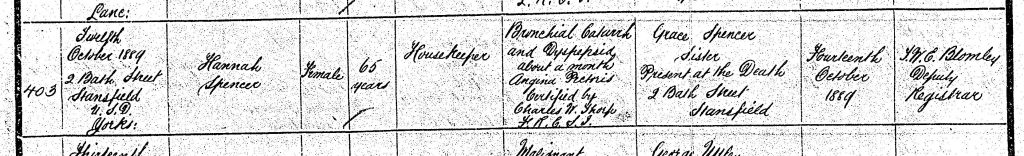 Lane:
403
Twelfth
October 1889
2 Bath Street
Stansfield
U.S.D.
Yorks:
Hannah
Spencer
Female
65
years
Housekeeper
Bronchial Catarrh
and Dyspepsia
about a month
Angina Pectoris
Certified by
Charles W. Thorp
F.R.C.S.I.
Grace Spencer
Sister
Present at the Death
2 Bath Street
Stansfield
Fourteenth
October
1889
J.W.E. Blomley
Deputy
Registrar
Thirteenth
Malignant
George